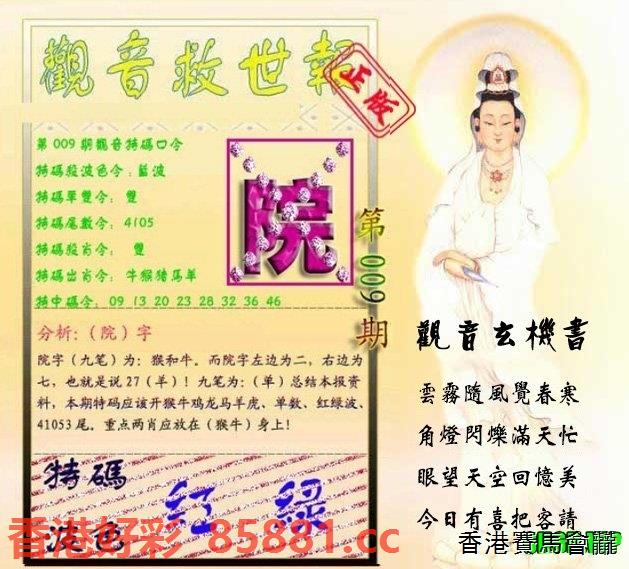 觀音救世報
正版
第009期觀音特碼口令
特碼殺波色令：藍波
特碼單雙令： 雙
特碼尾數令： 4105
特碼殺肖令： 雙
特碼出肖令： 牛猴豬馬羊
特中碼令： 09 13 20 23 28 32 36 46
院
第009期
分析:（院）字
院字（九笔）为：猴和牛。而院字左边为二，右边为
七，也就是说27（羊）！九笔为：（单）总结本报资
料，本期特码应该开猴牛鸡龙马羊虎、单数、红绿波、
41053尾。重点两肖应放在（猴牛）身上！
觀音玄機書
雲霧隨風覺春寒
角燈閃爍滿天忙
眼望天空回憶美
今日有喜把客請
特碼
波色
红 绿
香港好彩 85881.cc
香港賽馬會